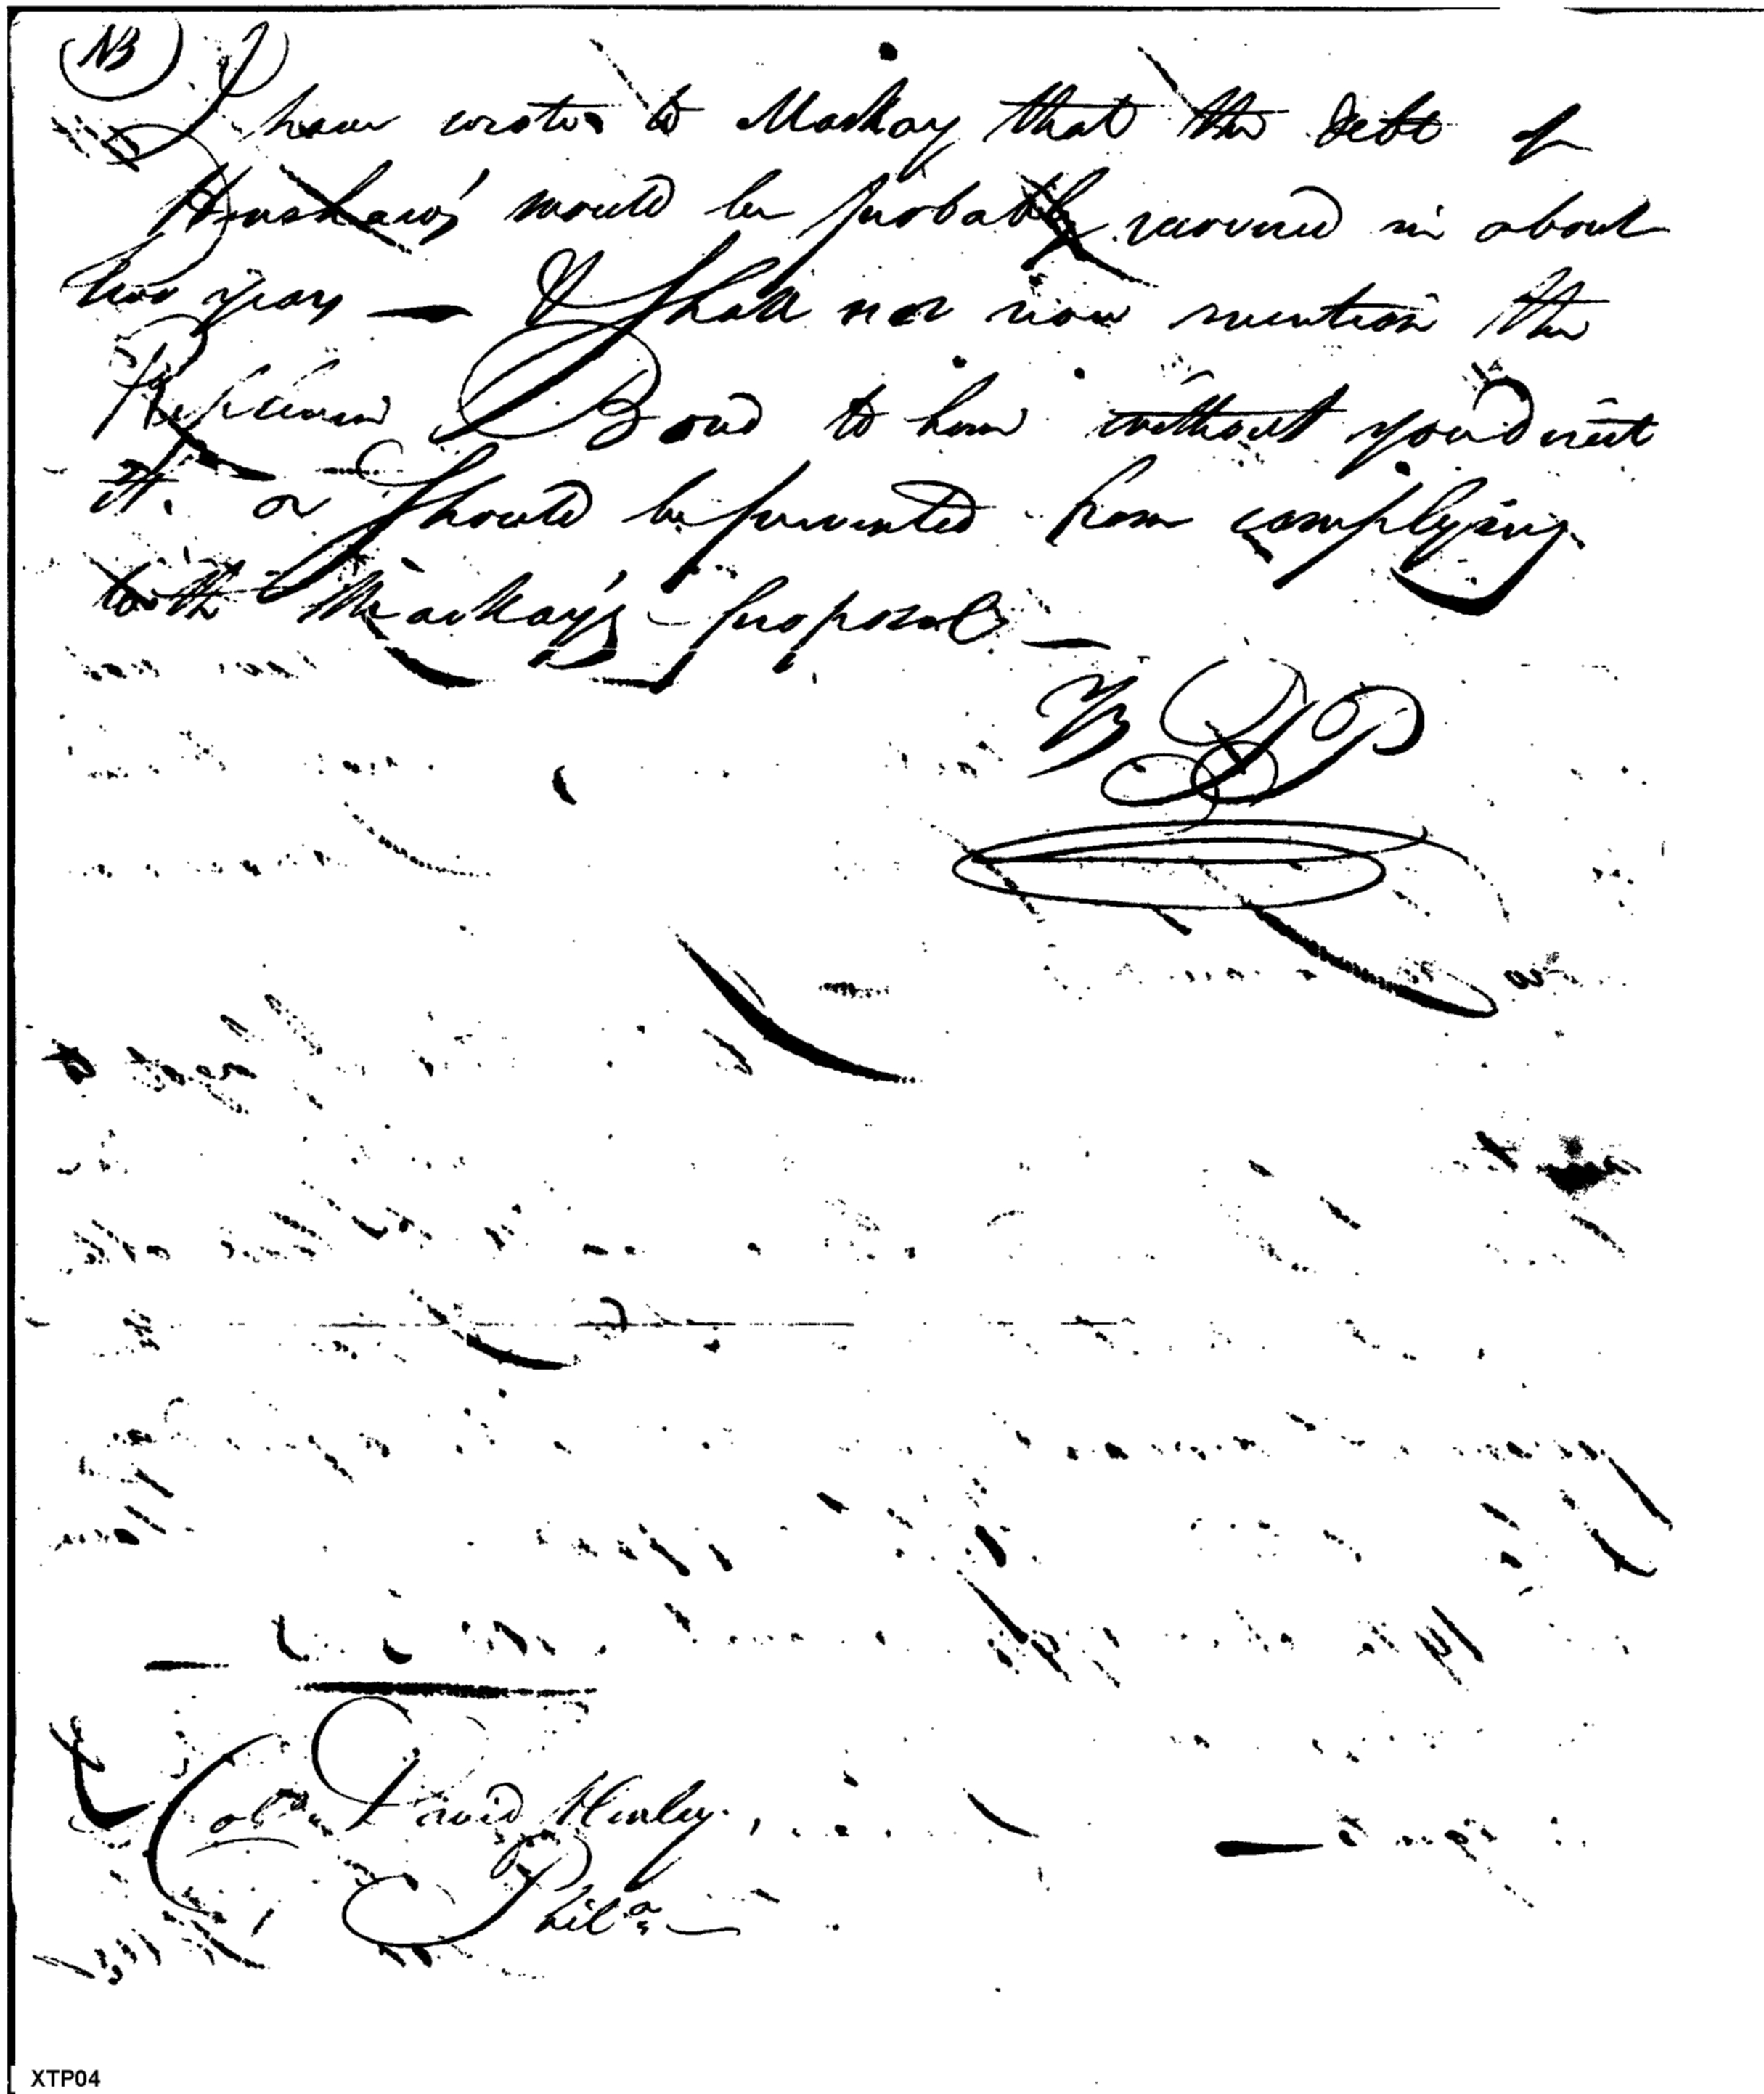 NB
I have wrote to Mackay that the debt of
Henshaw's would be probably recovered in about
two years — I Shall not now mention the
Replevin Bond to him without you direct
it. or Should be prevented from complying
with Mackay's proposal —
Colo. David Henley,
Phila.
XTP04